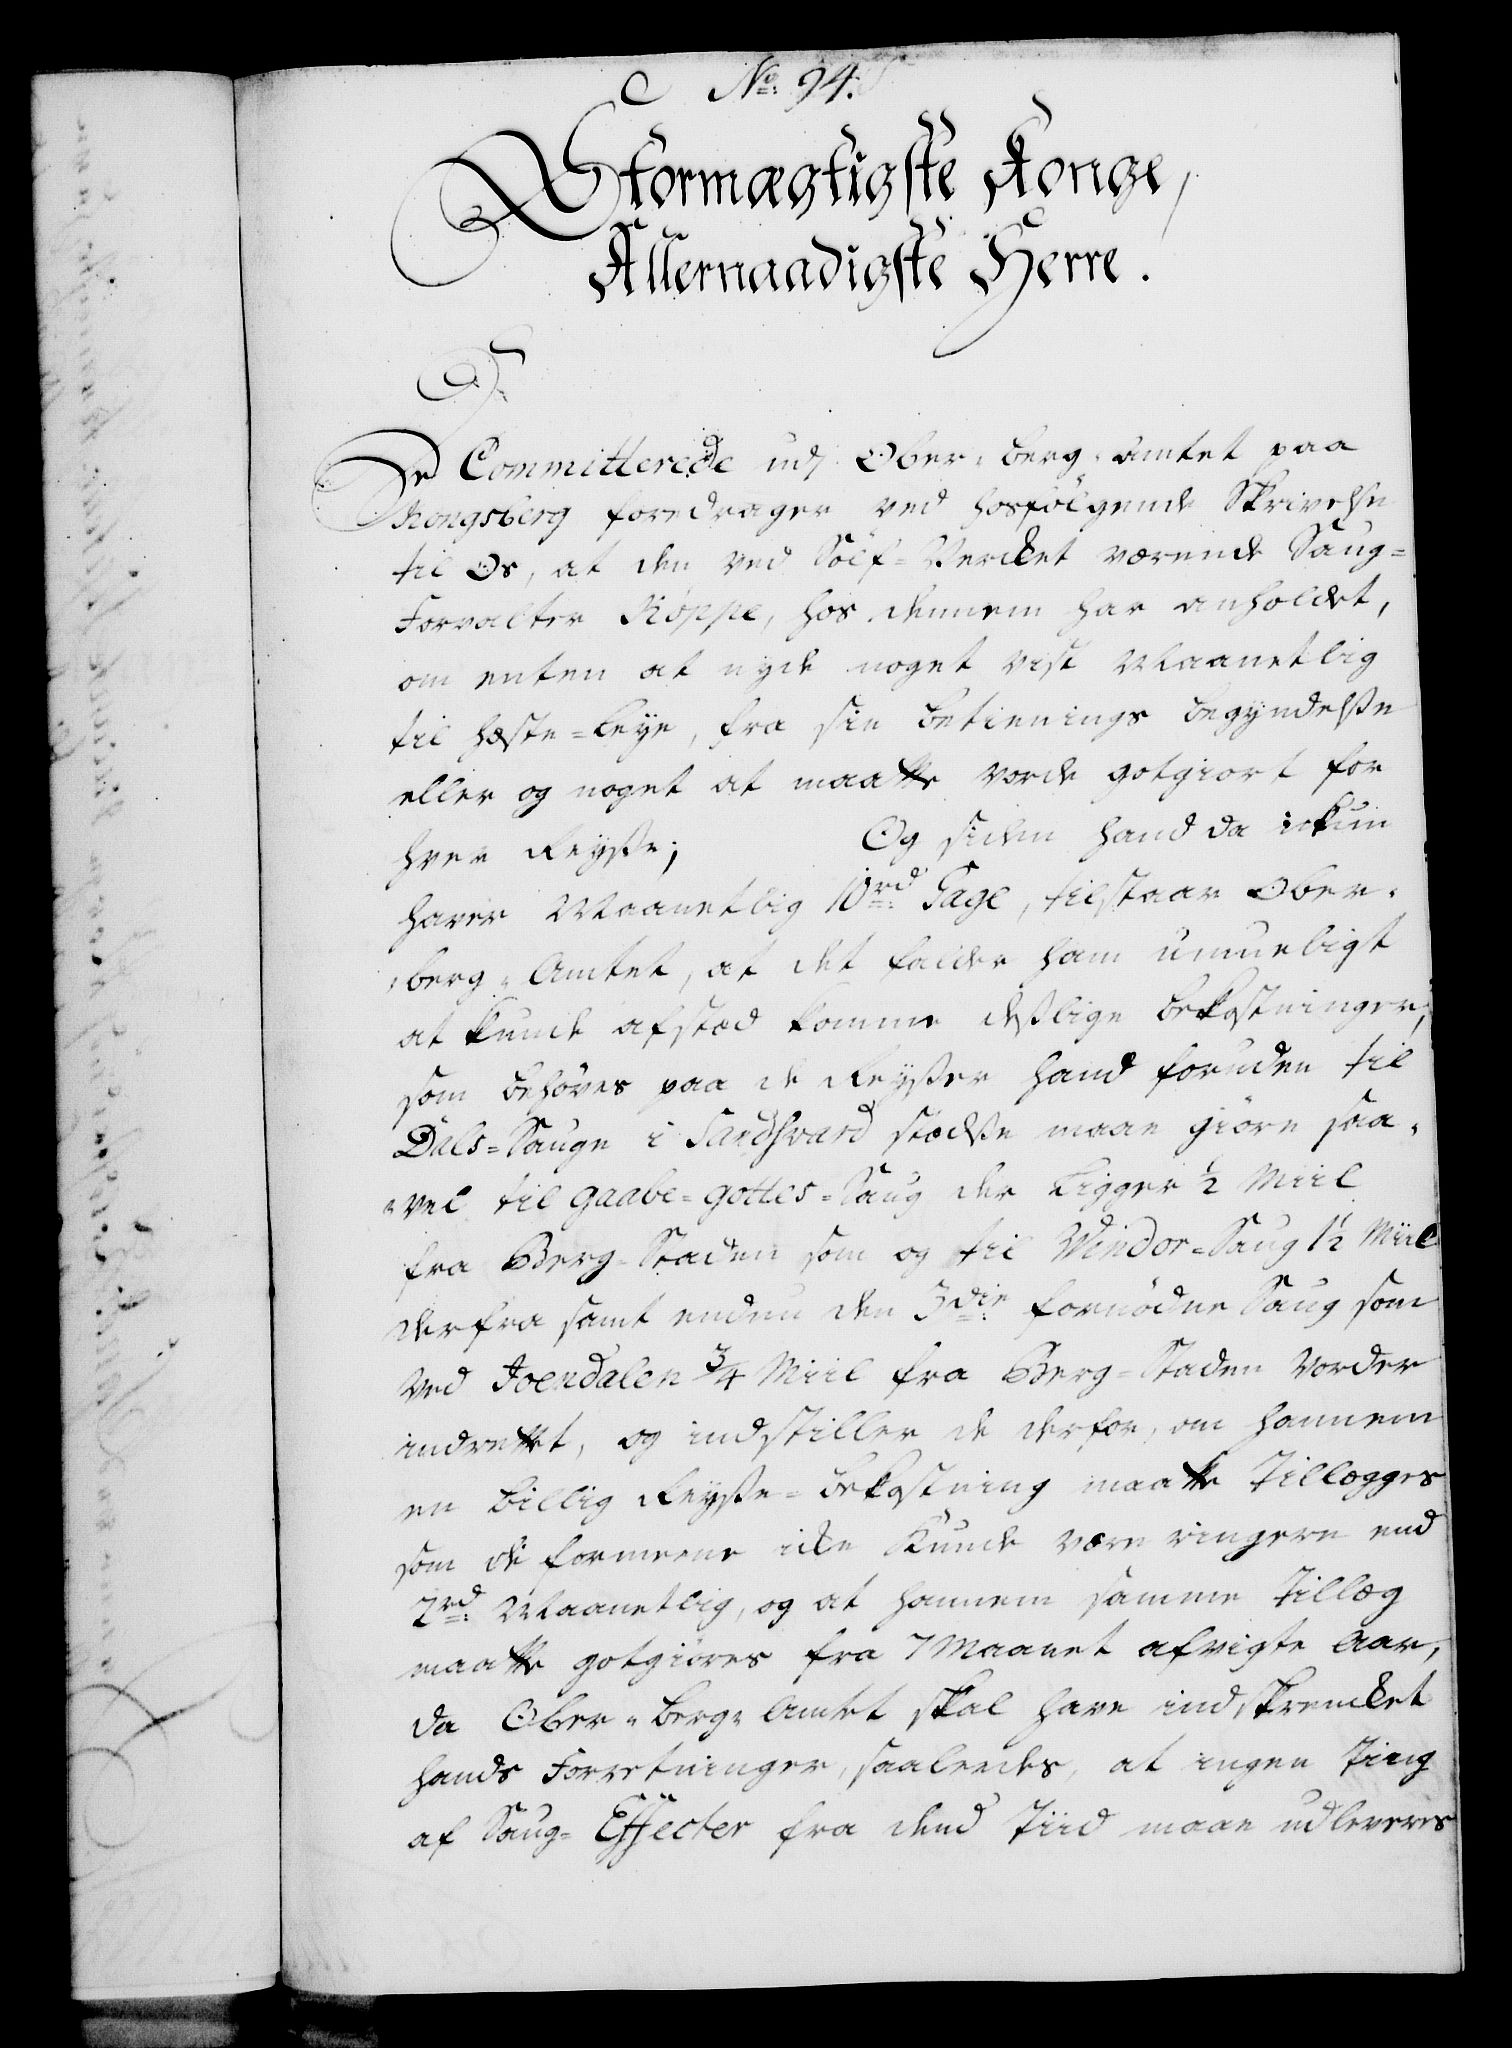 No: 94.
Stormægtigste Konge,
Allernaadigste Herre.
De Committerede udj Ober-berg-amtet paa
Kongsberg foredrager ved hosfölgende Skrivelse
til Os, at den ved Sölf-Vercket værende Saug-
Forvalter Köppe, hos dennem har anholdet,
om enten at nyde noget vist Maanetlig
til Heste-Leye, fra sin betienings begyndelsse
eller og noget at maatte vorde gotgiort for
hver Reysse; Og siden hand da ickun
haver Maanetlig 10 rd Gage, tilstaar Ober-
berg-Amtet, at det falder ham umueligt
at kunde afstæd komme desslige bekostninger,
som behöves paa de Reysser hand foruden til
Dals-Sauge i Sandsværd stædsse maae giöre saa-
vel til Gaabe-Gottes-Saug der Ligger 1/2 Miil
fra Berg-Staden som og til Windor-Saug 1 1/2 Miil
derfra samt endnu den 3die fornödne Saug som
ved Joendalen 3/4 Miil fra Berg-Staden vorder
indrettet, og indstiller de derfor, om hannem
en billig Reysse-bekostning maatte Tillægges
som de formeene icke Kunde være ringere end
2 rd Maanetlig, og at hannem samme Tillæg
maatte gotgiöres fra 7 Maanet afvigte Aar,
da Ober-berg-Amtet skal have indskrencket
hands Forretninger, saaledes, at ingen Ting
af Saug-Effecter fra dend Tiid maae udleveres